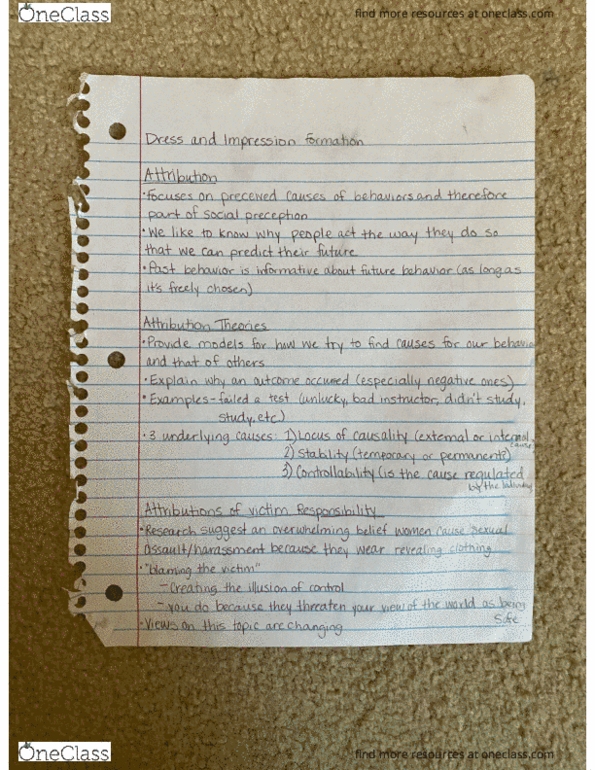 OneClass
find more resources at oneclass.com
Dress and Impression Formation
Attribution
•Focuses on preceived causes of behaviors and therefore
part of social preception
•We like to know why people act the way they do so
that we can predict their future
•Past behavior is informative about future behavior (as long as
it's freely chosen)
Attribution Theories
•Provide models for how we try to find causes for our behavior
and that of others
•Explain why an outcome occured (especially negative ones)
•Examples-failed a test (unlucky, bad instructor, didn't study,
study, etc)
•3 underlying causes: 1) Locus of causality (external or internal
cause)
2) Stablity (temporary or permanent?)
3) Controllability (is the cause regulated
by the
Attributions of victim Responsibility
•Research suggest an overwhelming belief women cause sexual
assault/harassment because they wear revealing clothing
•"blaming the victim"
-Creating the illusion of control
-you do because they threaten your view of the world as being
safe
•Views on this topic are changing
OneClass
find more resources at oneclass.com